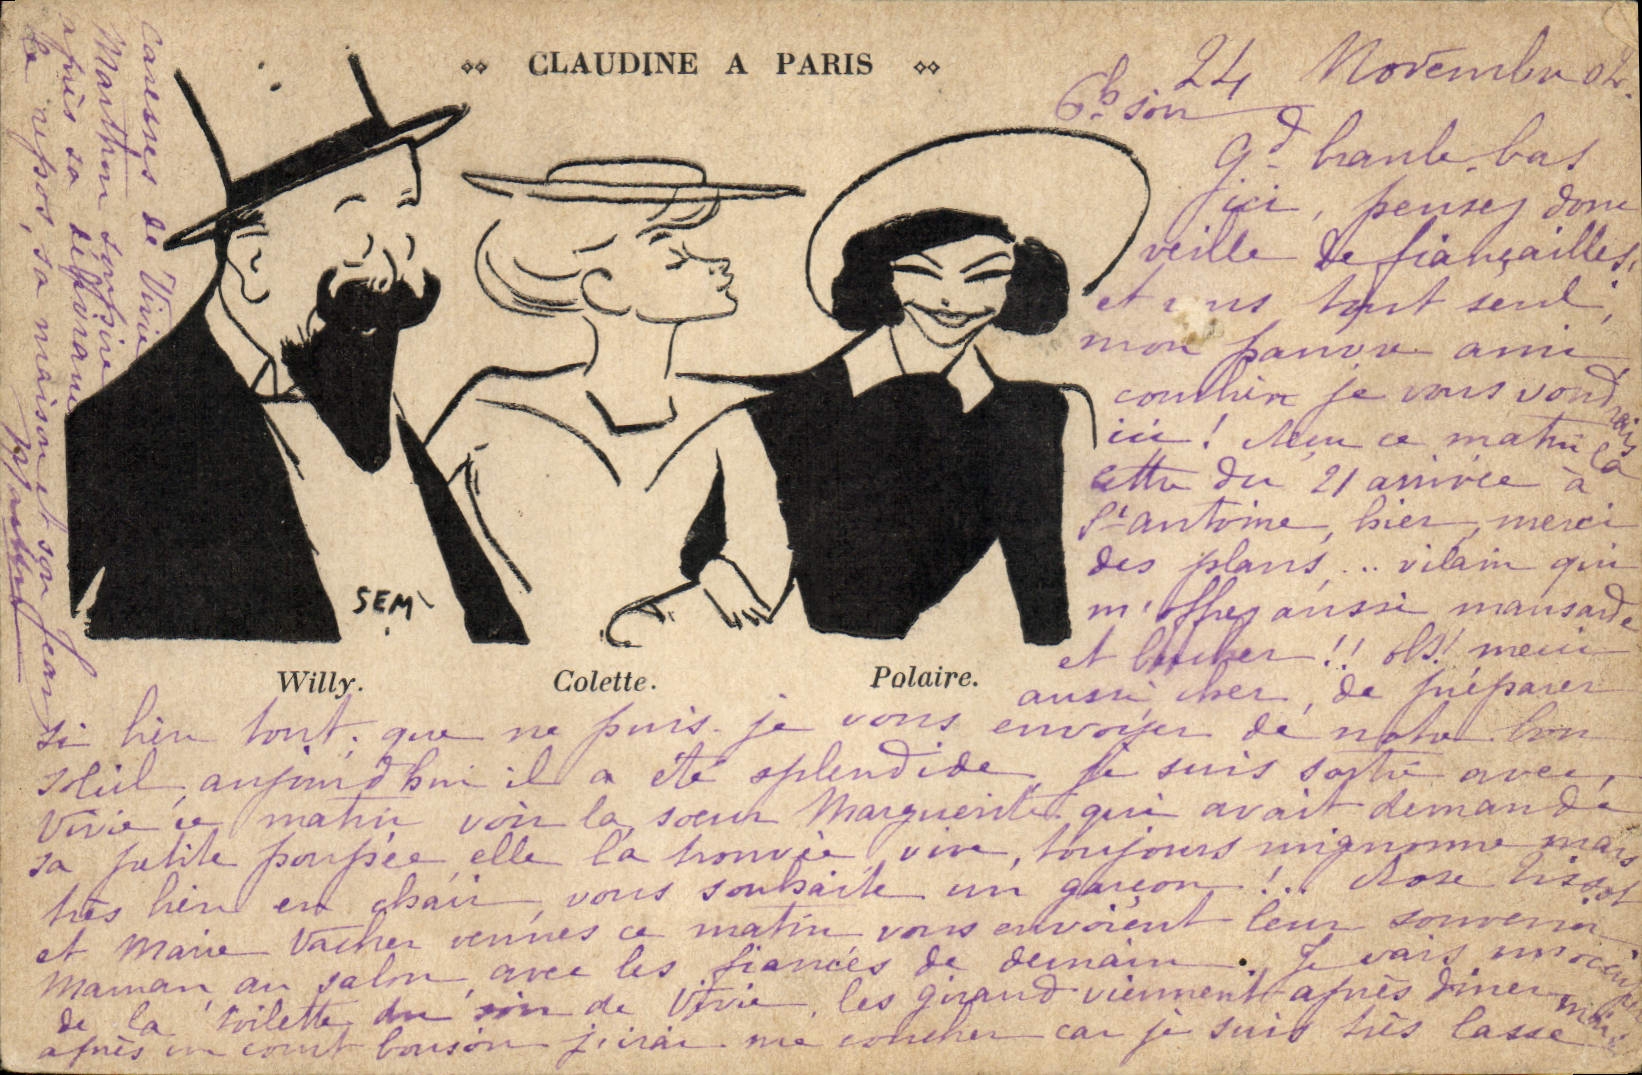 CLAUDINE A PARIS
24 Novembre 02.
6h soir
Gd branle-bas
ici, pensez donc
veille de fiançailles,
et vous tout seul,
mon pauvre ami
combien je vous voudrais
ici ! Reçu ce matin la
lettre du 21 arrivée à
St antoine, hier, merci
des plans, ... vilain qui
m'offrez aussi mansarde
et bûcher !! oh! merci
aussi, cher, de préparer
si bien tout. que ne puis-je vous envoyer de notre bon
soleil, aujourd'hui il a été splendide, je suis sortie avec
Vivie ce matin voir la soeur Marguerite qui avait demandé
sa petite poupée, elle l'a trouvée, vive, toujours mignonne mais
très bien en chair, vous souhaite un garçon !.. Rose Tissot
et Marie Vacher venues ce matin vous envoient leur souvenir
Maman, au salon, avec les fiancés de demain. Je vais m'occuper
de la toilette du soir de Vivie, les Giraud viennent après diner
après un court bonsoir j'irai me coucher car je suis très lasse
Caresses de Vivie
Marthon soupire
après sa délivrance
le repos, sa maison et son Jean
SEM
Willy.
Colette.
Polaire.